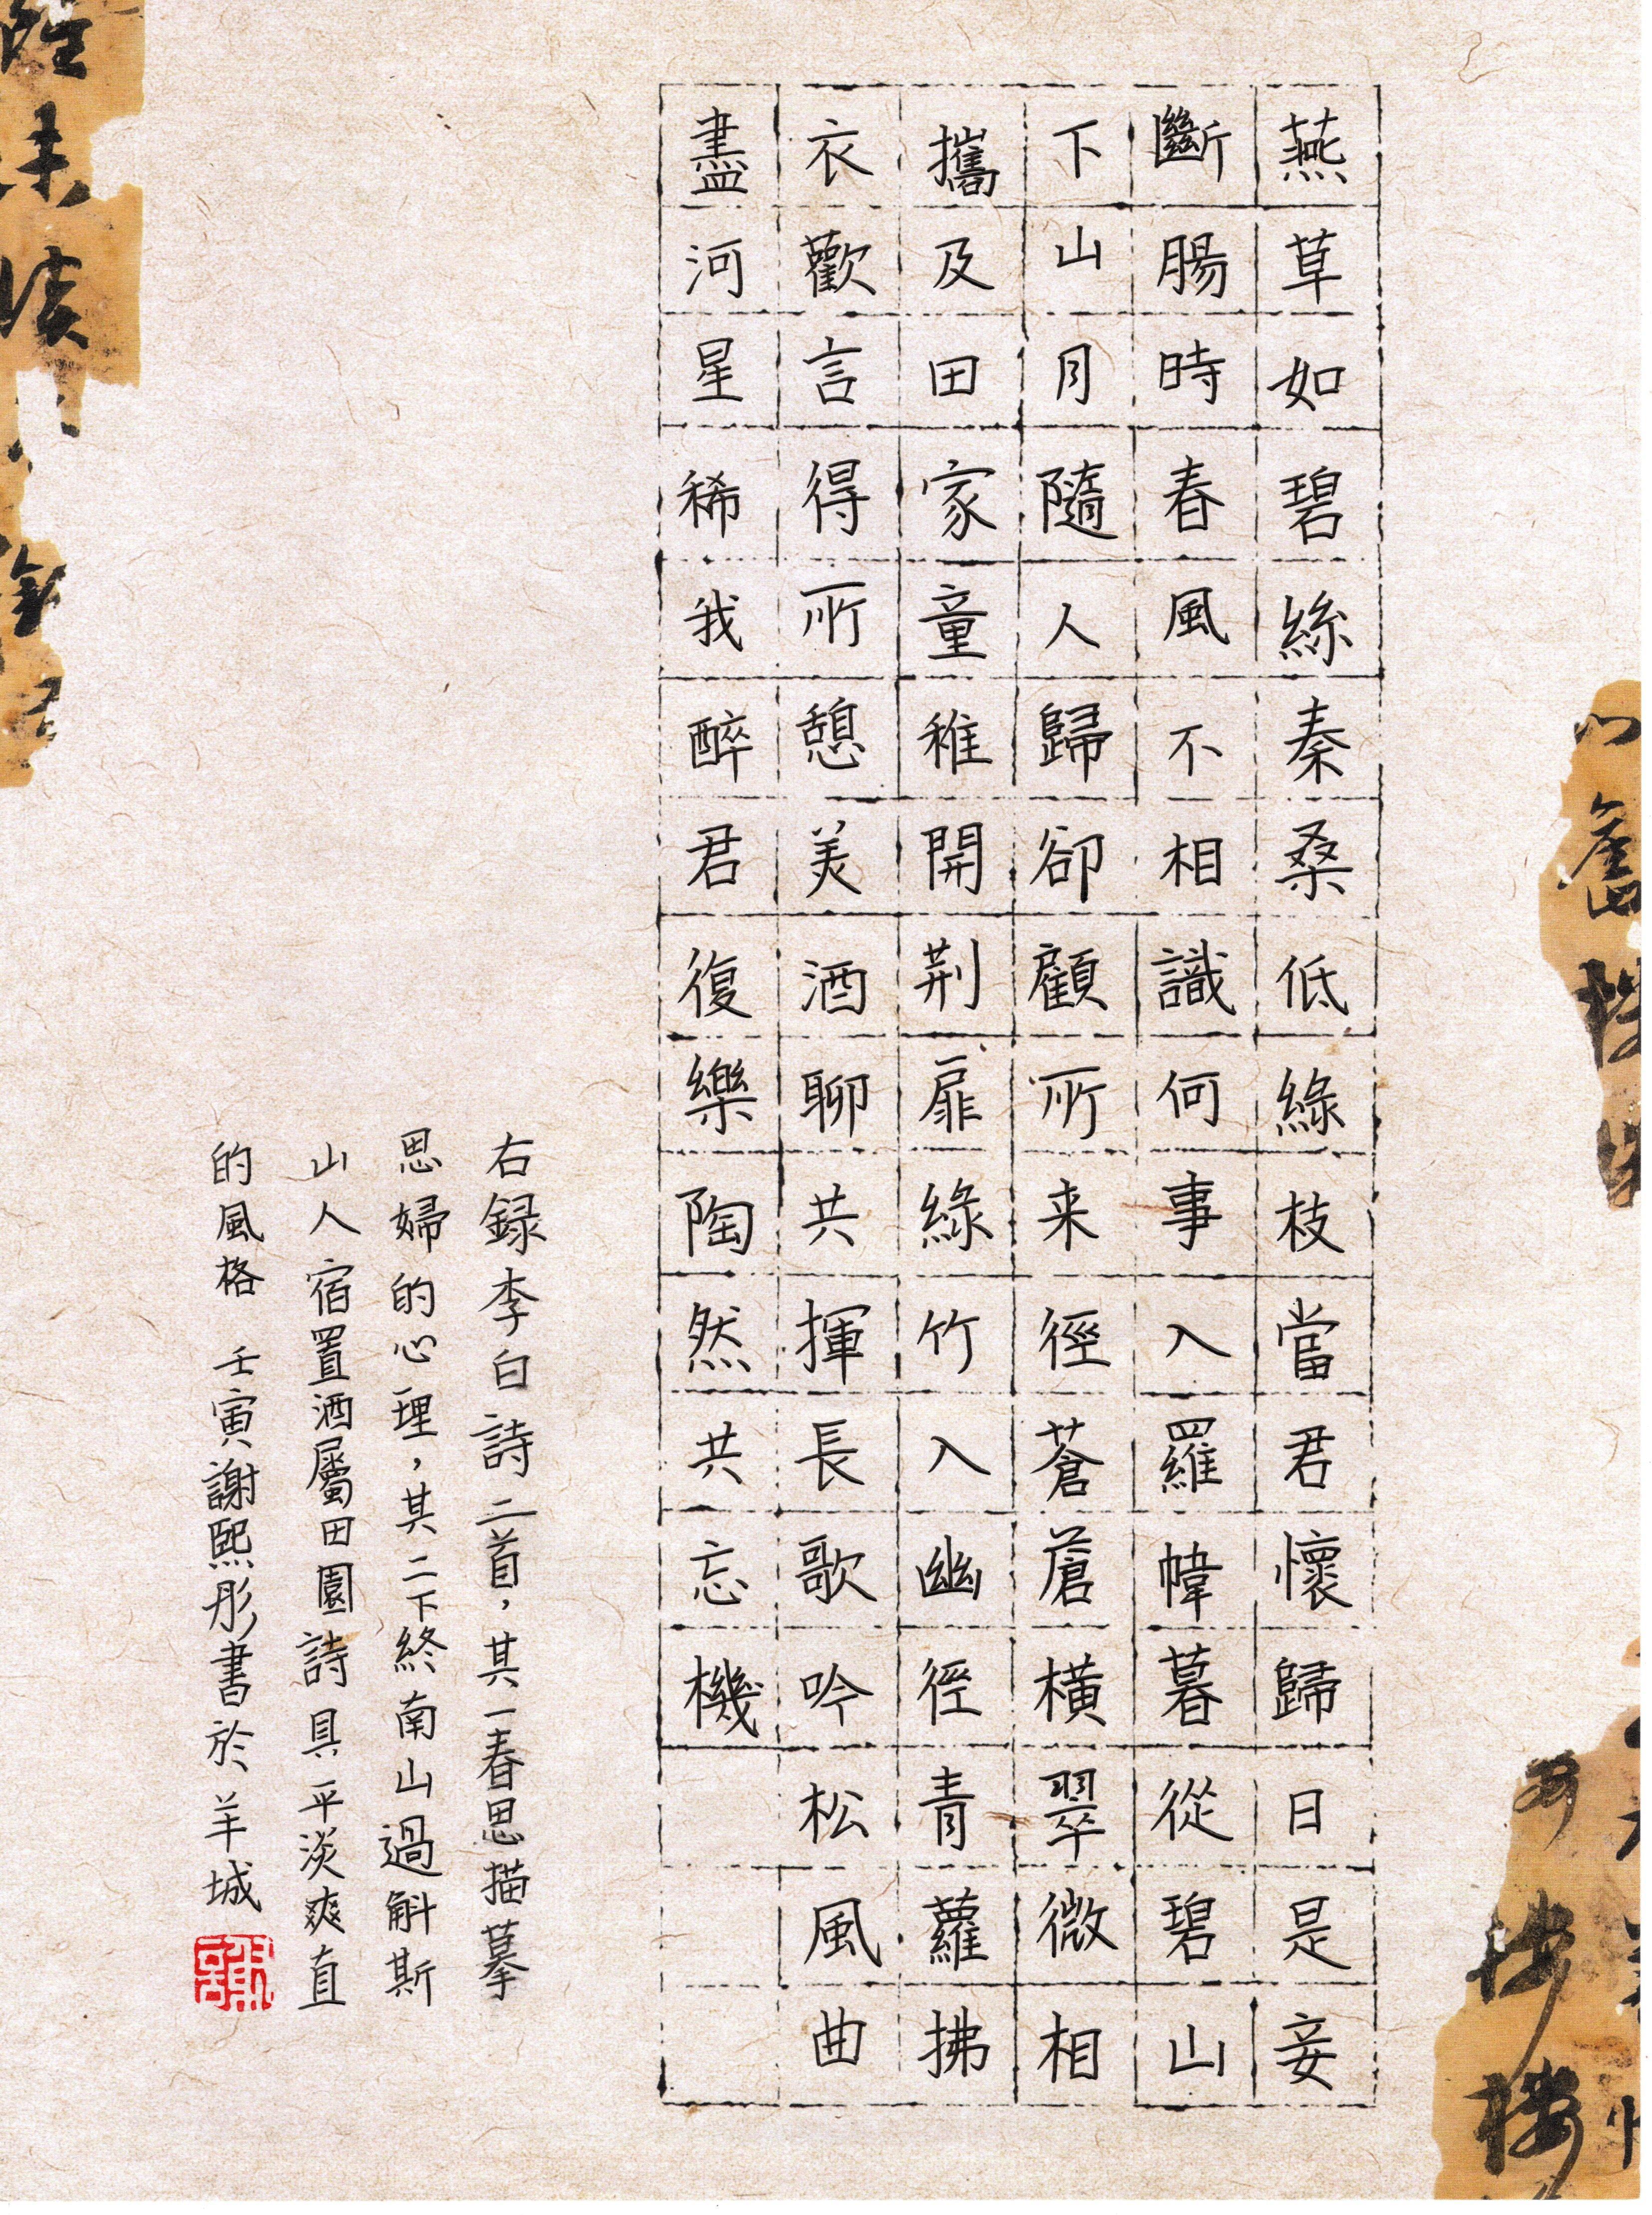 燕草如碧絲秦桑低綠枝當君懷歸日是妾
斷腸時春風不相識何事入羅幃暮從碧山
下山月隨人歸卻顧所来徑蒼蒼橫翠微相
攜及田家童稚開荆扉綠竹入幽徑青蘿拂
衣歡言得所憩美酒聊共揮長歌吟松風曲
盡河星稀我醉君復樂陶然共忘機
右録李白詩二首，其一春思描摹
思婦的心理，其二下終南山過斛斯
山人宿置酒屬田園詩具平淡爽直
的風格 壬寅謝熙彤書於羊城